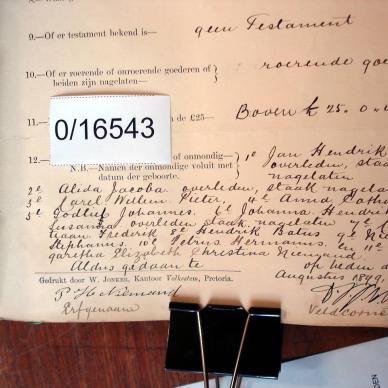 9.—Of er testament bekend is— geen Testament
10.—Of er roerende of onroerende goederen of
beiden zijn nagelaten— roerende goe
11. n de £25— Boven £ 25. 0.
0/16543
12. of onmondig— 1e Jan Hendrik
N.B.—Namen der onmondige voluit met overleden, staa
datum der geboorte. nagelaten
2e Alida Jacoba overleden, staak nagela
3e Karel Willem Pieter, 4e Anna Cath
5e Godlief Johannes. 6e Johanna Hendri
Susanna overleden staak nagelaten 7e
Frederik 8e Hendrik Batus 9e
Stephanus. 10e Petrus Hermanus. en 11e
garitha Elizabeth Christina Nienaand
Aldus gedaan te op heden d
Gedrukt door W. JONKER, Kantoor Volksstem, Pretoria. Augustus 1899
P. H. Niemand
Erfgenaam Veldcorne